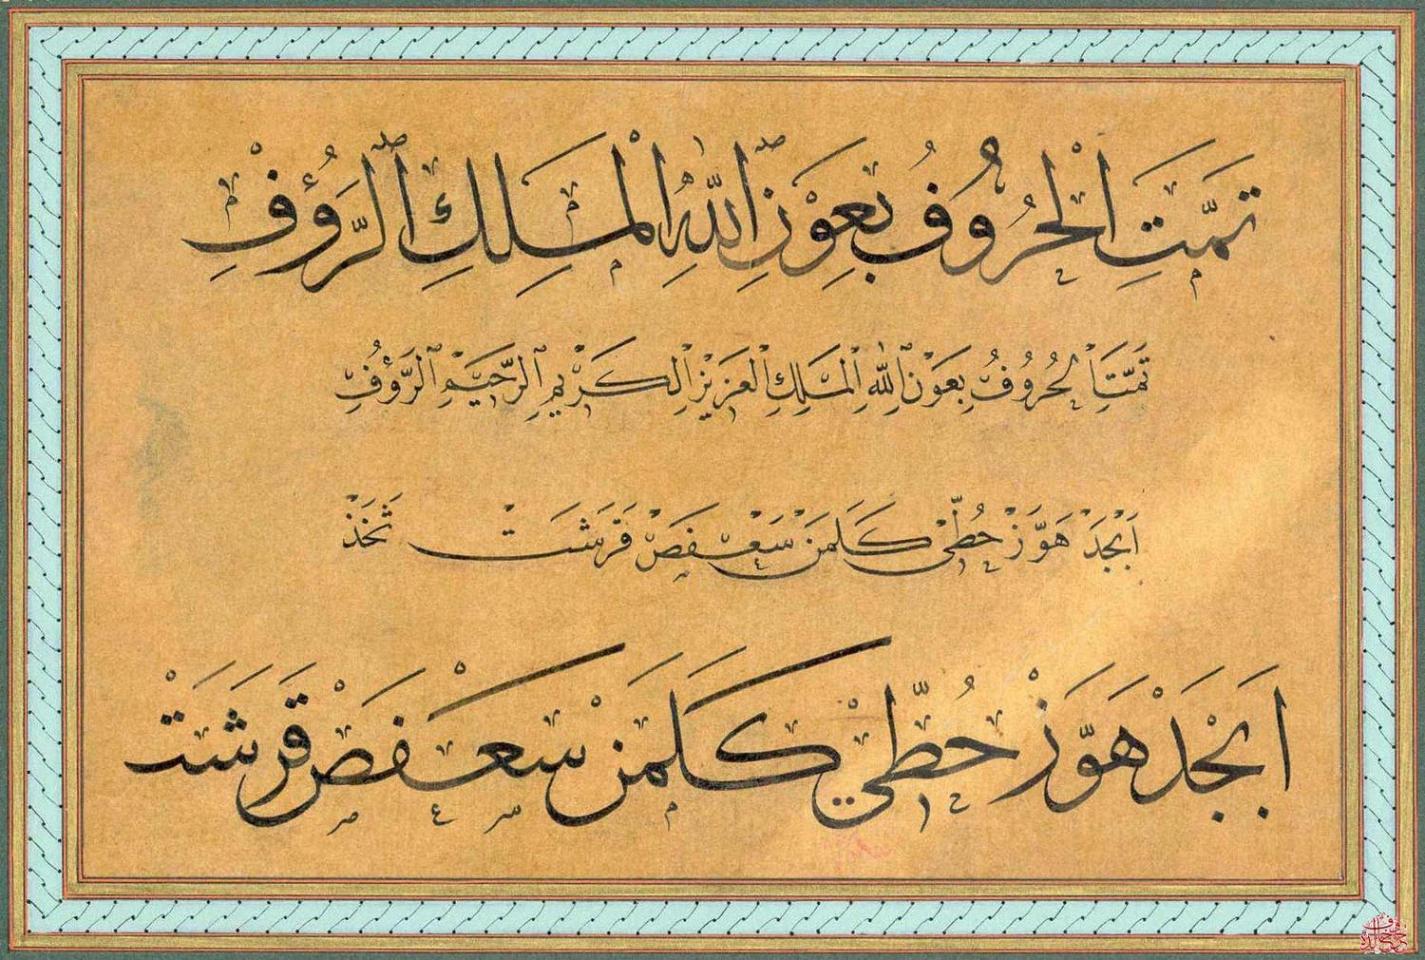 تَمَّتِ الْحُرُوفُ بِعَوْنِ اللّٰهِ الْمَلِكِ الرَّؤُفِ
تَمَّتِ الْحُرُوفُ بِعَوْنِ اللّٰهِ الْمَلِكِ الْعَزِيزِ الْكَرِيمِ الرَّحِيمِ الرَّؤُفِ
اَبْجَدْ هَوَّزْ حُطِّي كَلَمَنْ سَعْفَصْ قَرَشَتْ ثَخَذْ
اَبْجَدْ هَوَّزْ حُطِّي كَلَمَنْ سَعْفَصْ قَرَشَتْ